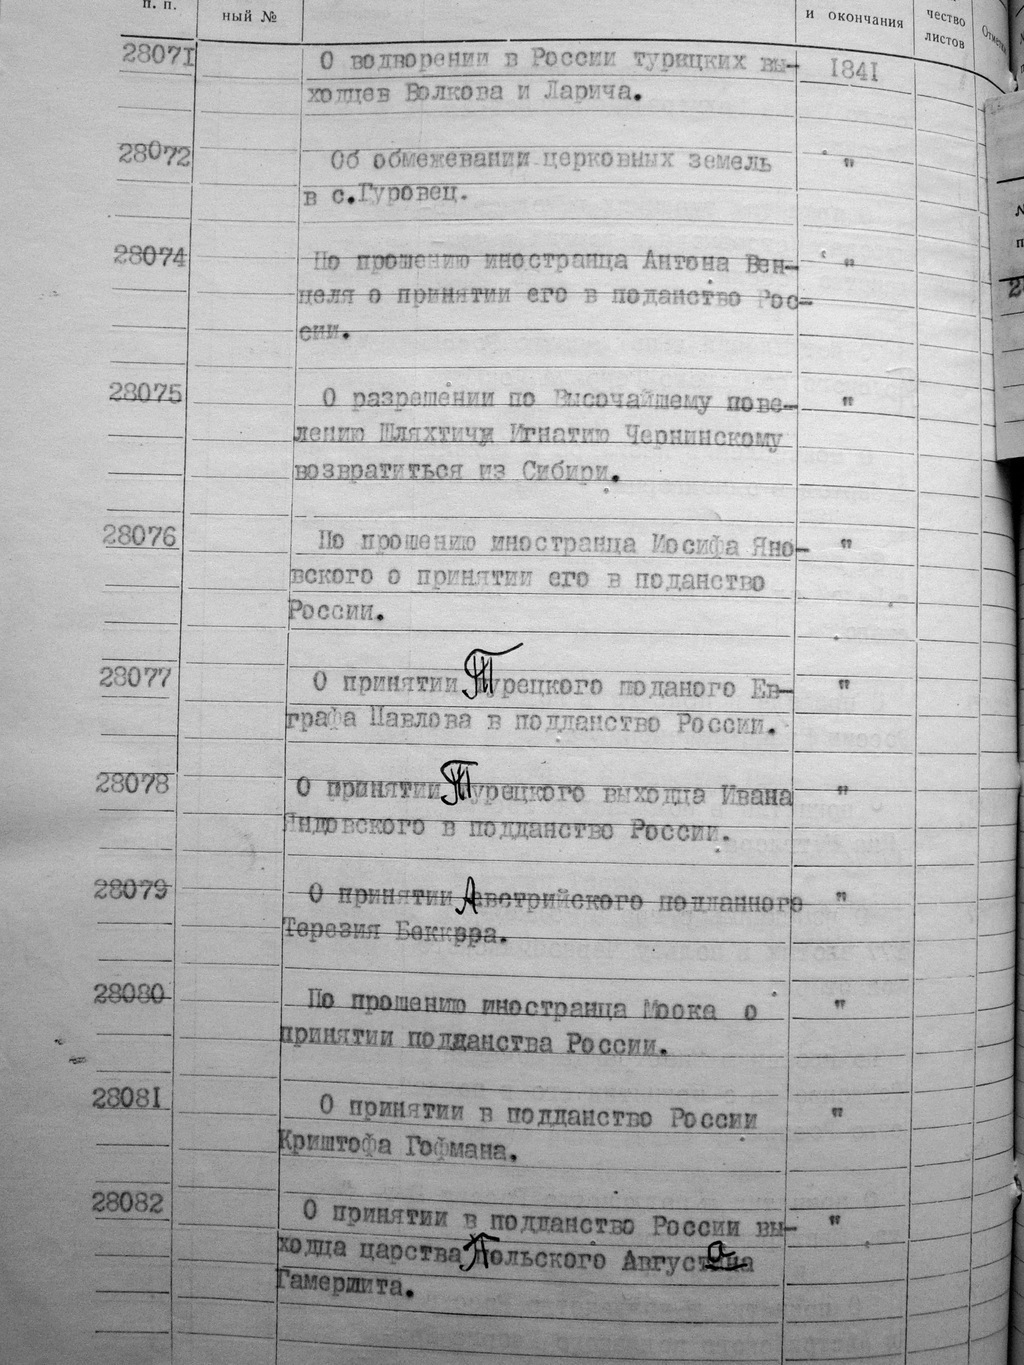 п. п.
ный №
и окончания
чество
листов
Отметки
28071 О водворении в России турицких вы- 1841
ходцев Волкова и Ларича.
28072 Об обмежевании церковных земель "
в с.Гуровец.
28074 По прошению иностранца Антона Вен- "
целя о принятии его в поданство Рос-
сии.
28075 О разрешении по Высочайшему пове- "
лению Шляхтичу Игнатию Чернинскому
возвратиться из Сибири.
28076 По прошению иностранца Иосифа Яно- "
вского о принятии его в поданство
России.
28077 О принятии Турецкого поданого Ев- "
графа Павлова в подданство России.
28078 О принятии Турецкого выходца Ивана "
Яндовского в подданство России.
28079 О принятии Австрийского подданного "
Терезия Беккрра.
28080 По прошению иностранца Моока о "
принятии подданства России.
28081 О принятии в подданство России "
Криштофа Гофмана.
28082 О принятии в подданство России вы- "
ходца царства Польского Августа
Гамершита.